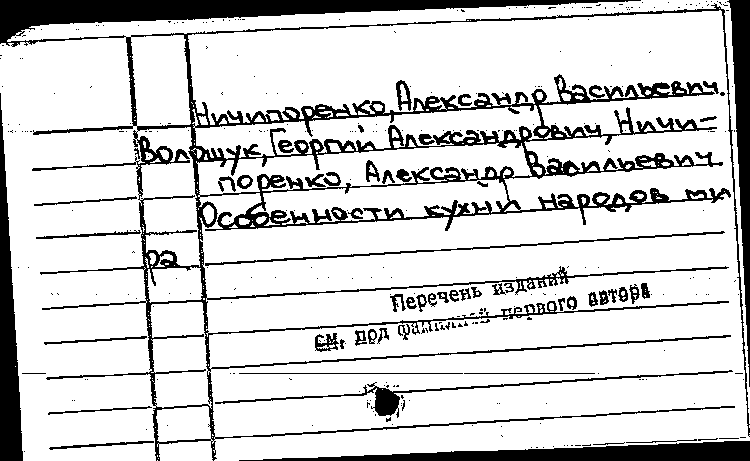 Ничипоренко, Александр Васильевич.
Волощук, Георгий Александрович, Ничи-
поренко, Александр Васильевич.
Особенности кухни народов ми
ра
Перечень изданий
см. под фамилией первого автора